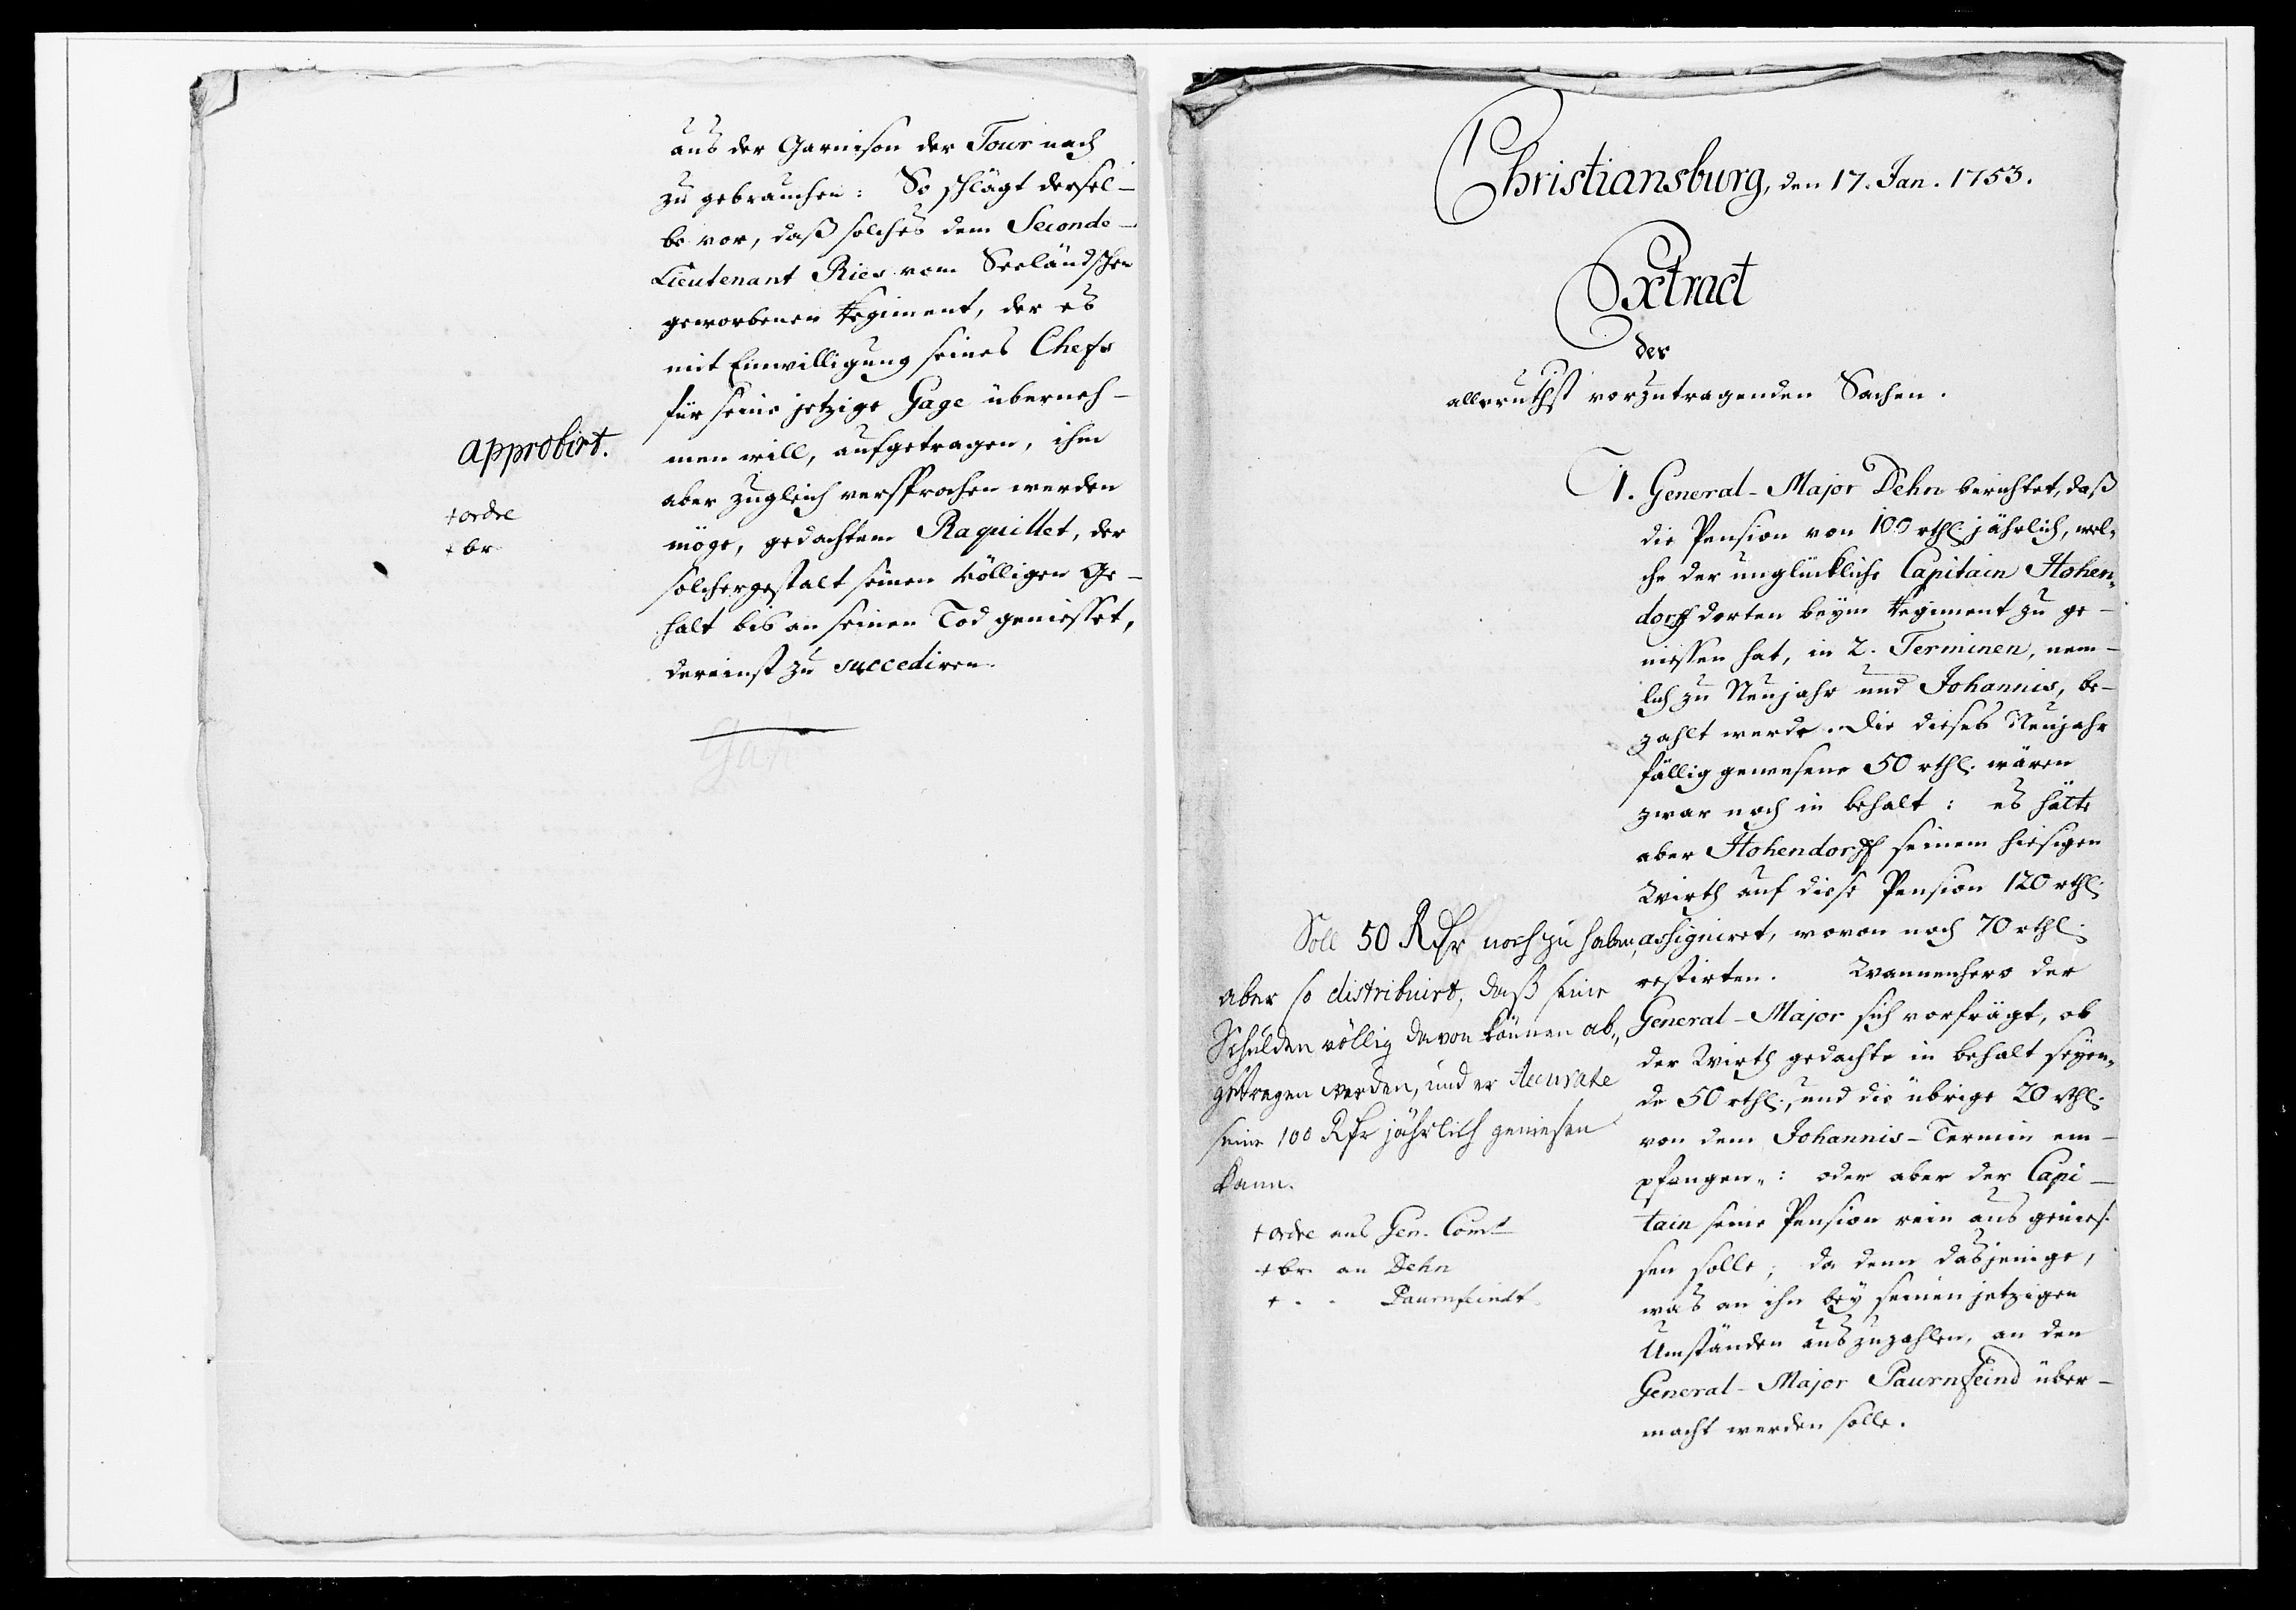 aus der Garnison der Tour nach
zu gebrauchen: So schlägt dersel-
be vor, daß solches dem Seconde-
Lieutenant Ries vom Seeländschen
geworbenen Regiment, der es
mit Einwilligung seines Chefs
für seine jetzige Gage überneh-
men will, aufgetragen, ihm
aber zugleich versprochen werden
möge, gedachtem Raquillet, der
solchergestalt seinen völligen Ge-
halt bis an seinen Tod geniesset,
dereinst zu succediren.
approbirt.
+ ordre
+ br
Christiansburg, den 17. Jan. 1753.
Extract
der
allerunthst vorzutragenden Sachen.
1. General-Major Dehn berichtet, daß
die Pension von 100 rthl. jährlich, wel-
che der unglückliche Capitain Hohen-
dorff dorten beym Regiment zu ge-
niessen hat, in 2. Terminen, nem-
lich zu Neujahr und Johannis, be-
zahlt werde. Die dieses Neujahr
fällig gewesene 50 rthl. wären
zwar noch in behalt: es hätte
aber Hohendorff seinem hiesigen
Wirth auf diese Pension 120 rthl.
assigniret, wovon noch 70 rthl.
restirten. Wannenhero der
General-Major sich vorfrägt, ob
der Wirth gedachte in behalt seyen-
de 50 rthl., und die übrige 20 rthl.
von dem Johannis-Termin em-
pfangen: oder aber der Capi-
tain seine Pension rein aus genies-
sen solle; da denn dasjenige,
was an ihn bey seinen jetzigen
Umständen auszuzahlen, an den
General-Major Paurnfeind über-
macht werden solle.
Soll 50 Rthr noch zu haben,
aber so distribuirt, daß seine
Schulden völlig davon können ab-
getragen werden, und er Accurate
seine 100 Rthr jährlich geniesen
kann.
+ ordre ans Gen. Comt
+ br. an Dehn
+ - - Paurnfeindt